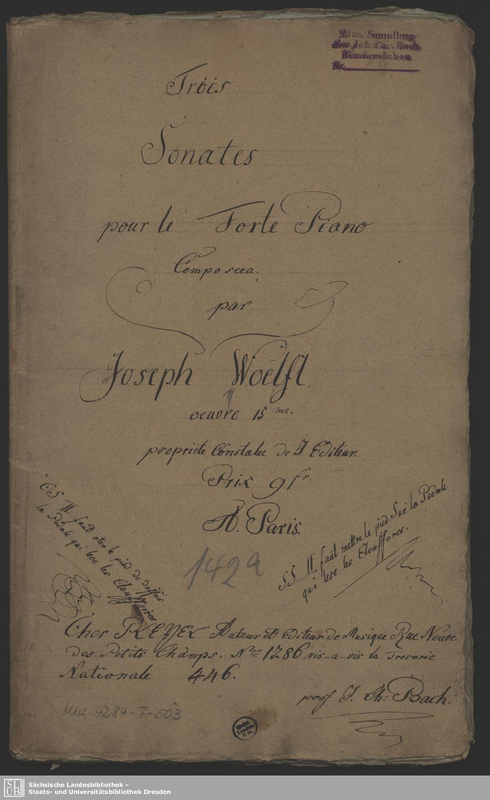 Mus. Sammlung
Trois
Sonates
pour le Forte Piano
Composeea.
par
Joseph Woëlfl.
oeuvre 15 me.
propriete Constatee de I Editeur.
Prix 9 fr.
A. Paris.
CS II faut oter le pied de dessus
la Pedale qui leve les Etouffoires
SS II faut mettre le pied Sur la Pedale
qui leve les Etouffores.
142a
Chez PLEYEL Auteur et Editeur de Musique Rue Neuve
des Petits Champs. No 1286 vis-a-vis la Tresorie
Nationale 446.
poss J. Ch: Bach.
Mus. 4284-T-503
SLUB
Sächsische Landesbibliothek –
Staats- und Universitätsbibliothek Dresden